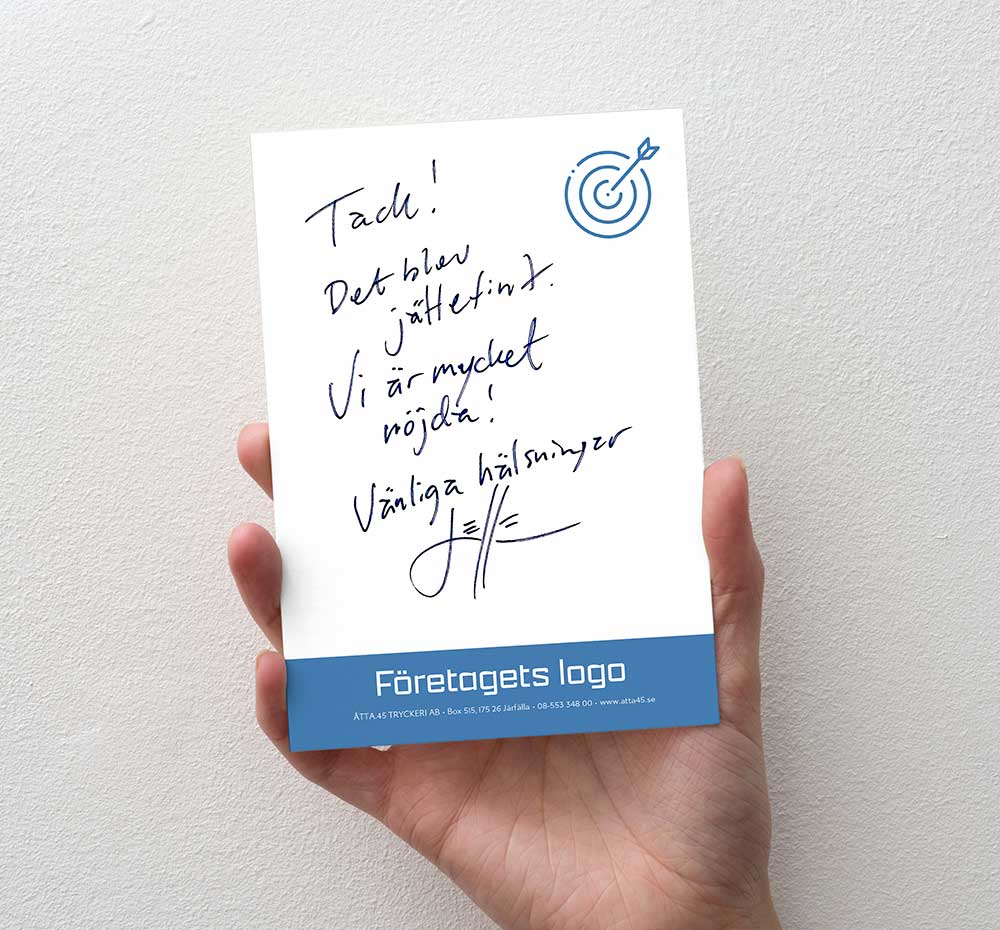 Tack!
Det blev
jättefint.
Vi är mycket
nöjda!
Vänliga hälsningar
Företagets logo
ÅTTA.45 TRYCKERI AB • Box 515, 175 26 Järfälla • 08-553 348 00 • www.atta45.se